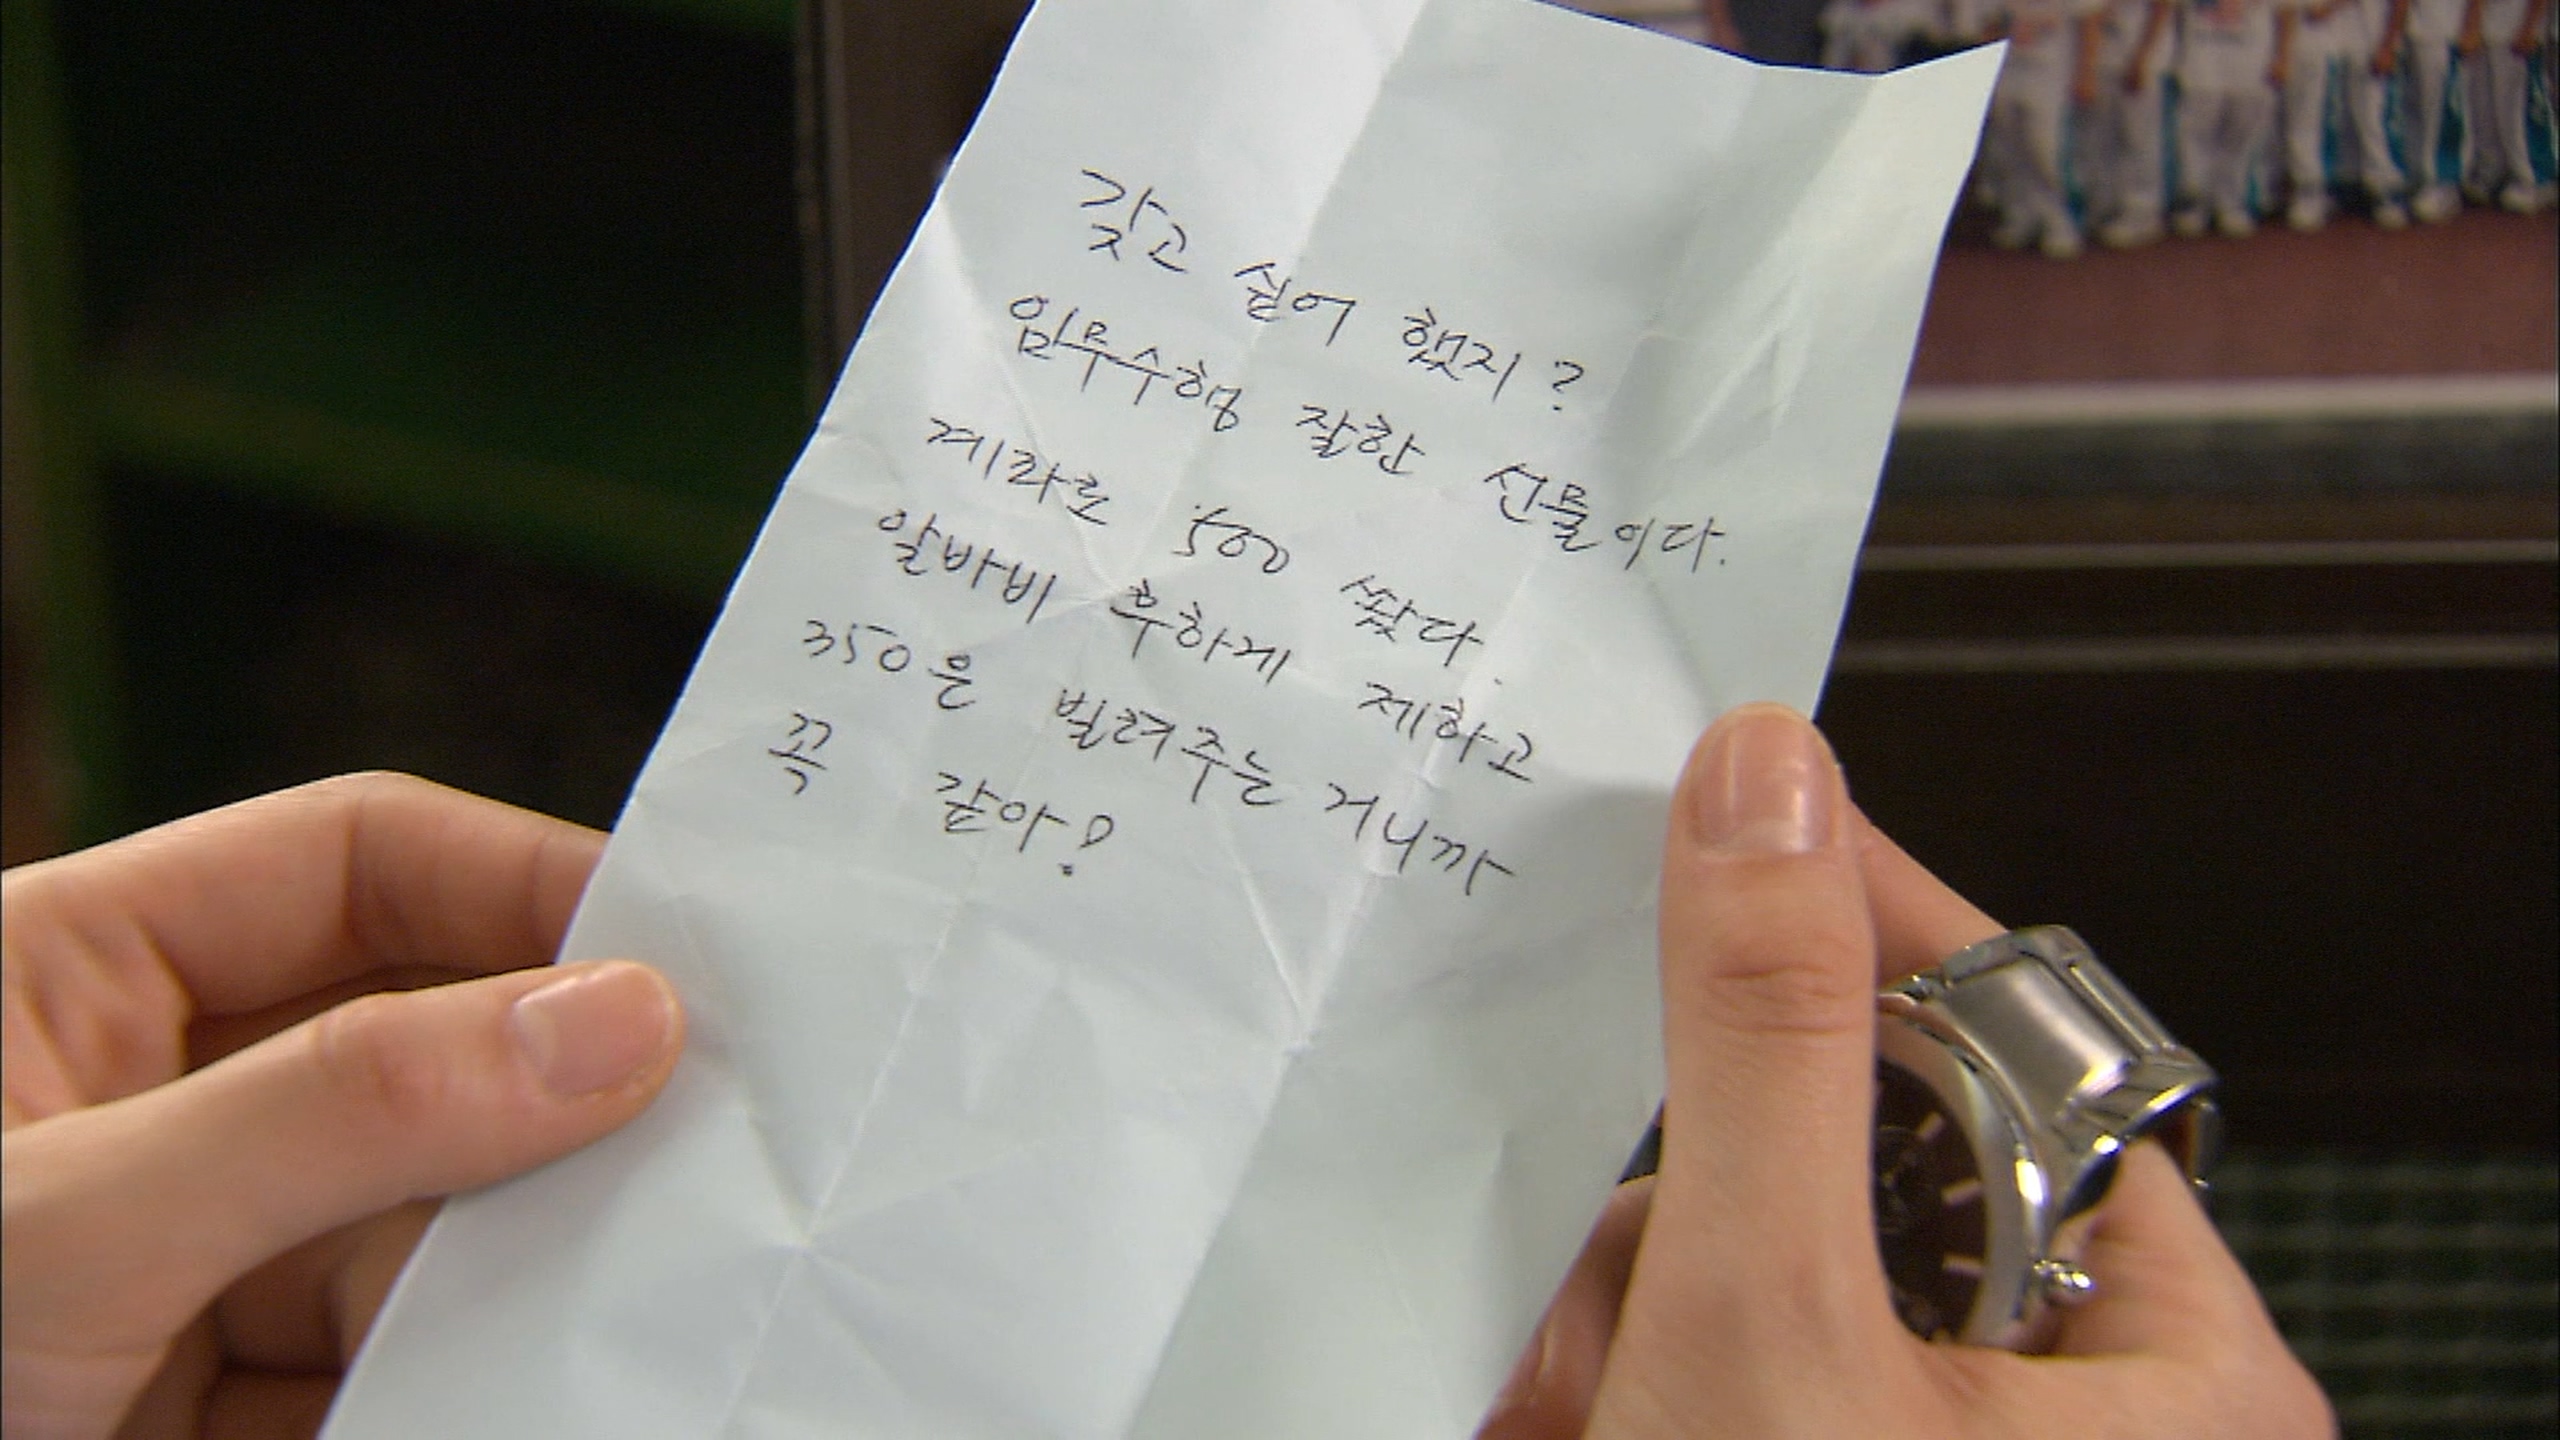 갖고 싶어 했지?
임무수행 잘한 선물이다.
계좌로 500 쐈다.
알바비 후하게 제하고
350은 빌려주는 거니까
꼭 갚아!